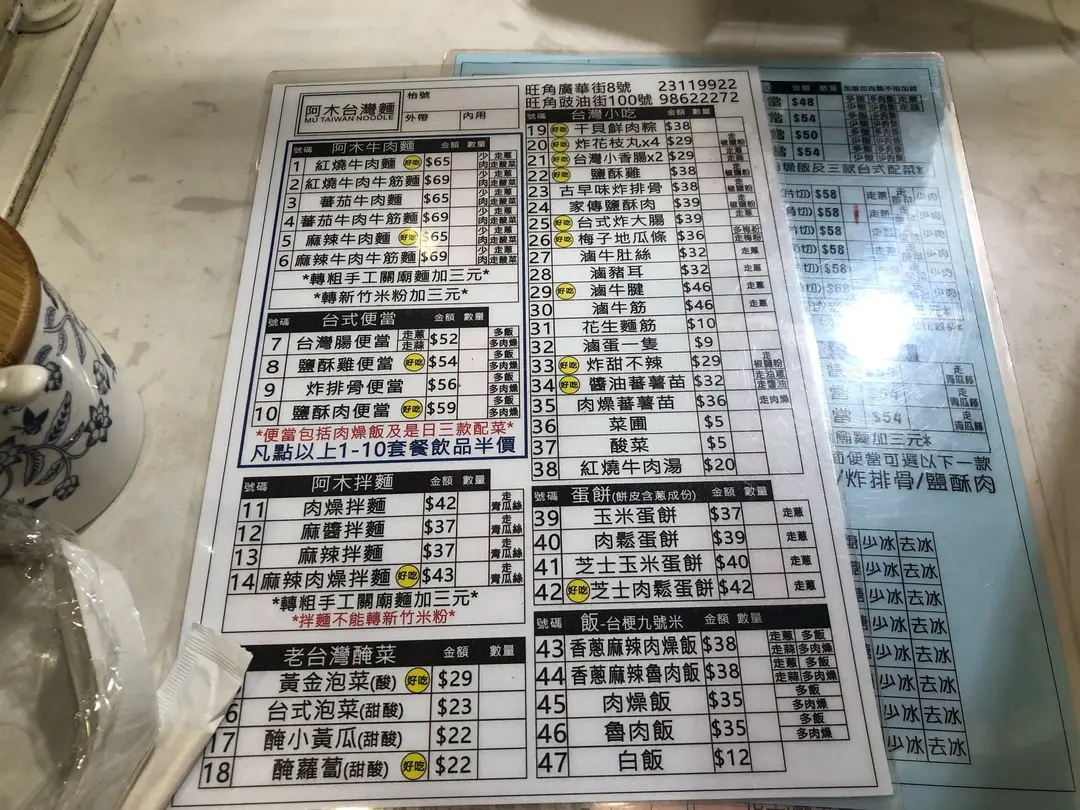 阿木台灣麵
MU TAIWAN NOODLE
枱號
外帶
內用
旺角廣華街8號 23119922
旺角豉油街100號 98622272
號碼 阿木牛肉麵 金額 數量
1 紅燒牛肉麵 好吃 $65 少肉 走蔥 走酸菜
2 紅燒牛肉牛筋麵 $69 少肉 走蔥 走酸菜
3 蕃茄牛肉麵 $65 少肉 走蔥 走酸菜
4 蕃茄牛肉牛筋麵 $69 少肉 走蔥 走酸菜
5 麻辣牛肉麵 好吃 $65 少肉 走蔥 走酸菜
6 麻辣牛肉牛筋麵 $69 少肉 走蔥 走酸菜
*轉粗手工關廟麵加三元*
*轉新竹米粉加三元*
號碼 台式便當 金額 數量
7 台灣腸便當 走蔥 走蒜 $52 多飯 多肉燥
8 鹽酥雞便當 好吃 $54 多飯 多肉燥
9 炸排骨便當 $56 多飯 多肉燥
10 鹽酥肉便當 好吃 $59 多飯 多肉燥
*便當包括肉燥飯及是日三款配菜*
凡點以上1-10套餐飲品半價
號碼 阿木拌麵 金額 數量
11 肉燥拌麵 $42 走青瓜絲
12 麻醬拌麵 $37 走青瓜絲
13 麻辣拌麵 $37 走青瓜絲
14 麻辣肉燥拌麵 好吃 $43 走青瓜絲
*轉粗手工關廟麵加三元*
*拌麵不能轉新竹米粉*
老台灣醃菜 金額 數量
黃金泡菜(酸) 好吃 $29
6 台式泡菜(甜酸) $23
17 醃小黃瓜(甜酸) $22
18 醃蘿蔔(甜酸) 好吃 $22
號碼 台灣小吃 金額 數量
19 好吃 干貝鮮肉粽 $38
20 好吃 炸花枝丸x4 $29 走椒鹽粉
21 好吃 台灣小香腸x2 $29
22 好吃 鹽酥雞 $38
23 古早味炸排骨 $38
24 家傳鹽酥肉 $39
25 好吃 台式炸大腸 $39
26 好吃 梅子地瓜條 $36 多梅粉 走梅粉
27 滷牛肚絲 $32 走蔥
28 滷豬耳 $32 走蔥
29 好吃 滷牛腱 $46 走蔥
30 滷牛筋 $46 走蔥
31 花生麵筋 $10
32 滷蛋一隻 $9
33 好吃 炸甜不辣 $29 走椒鹽粉
34 好吃 醬油蕃薯苗 $32
35 肉燥蕃薯苗 $36 走肉燥
36 菜圃 $5
37 酸菜 $5
38 紅燒牛肉湯 $20
號碼 蛋餅(餅皮含蔥成份) 金額 數量
39 玉米蛋餅 $37 走蔥
40 肉鬆蛋餅 $39 走蔥
41 芝士玉米蛋餅 $40 走蔥
42 好吃 芝士肉鬆蛋餅 $42 走蔥
號碼 飯-台梗九號米 金額 數量
43 香蔥麻辣肉燥飯 $38 走蔥 多飯 走蒜 多肉燥
44 香蔥麻辣魯肉飯 $38 走蔥 多飯 走蒜 多肉燥
45 肉燥飯 $35 多飯 多肉燥
46 魯肉飯 $35 多飯 多肉燥
47 白飯 $12
金額 數量
當 $48
當 $54
當 $50
當 $54
燥飯及三款台式配菜*
片切) $58 走蔥 少肉
切) $58 走蔥 少肉
切) $58
切) $58
當 $54 走青瓜絲
廟麵加三元*
便當可選以下一款
/炸排骨/鹽酥肉
少冰 去冰
少冰 去冰
少冰 去冰
少冰 去冰
少冰 去冰
少冰 去冰
少冰 去冰
少冰 去冰